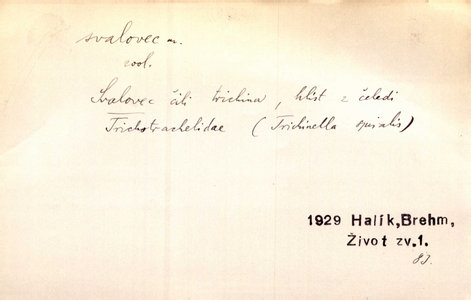 svalovec m.
zool.
Svalovec čili trichina, hlíst z čeledi
Trichotrachelidae (Trichinella spiralis)
1929 Halík, Brehm,
Život zv.1.